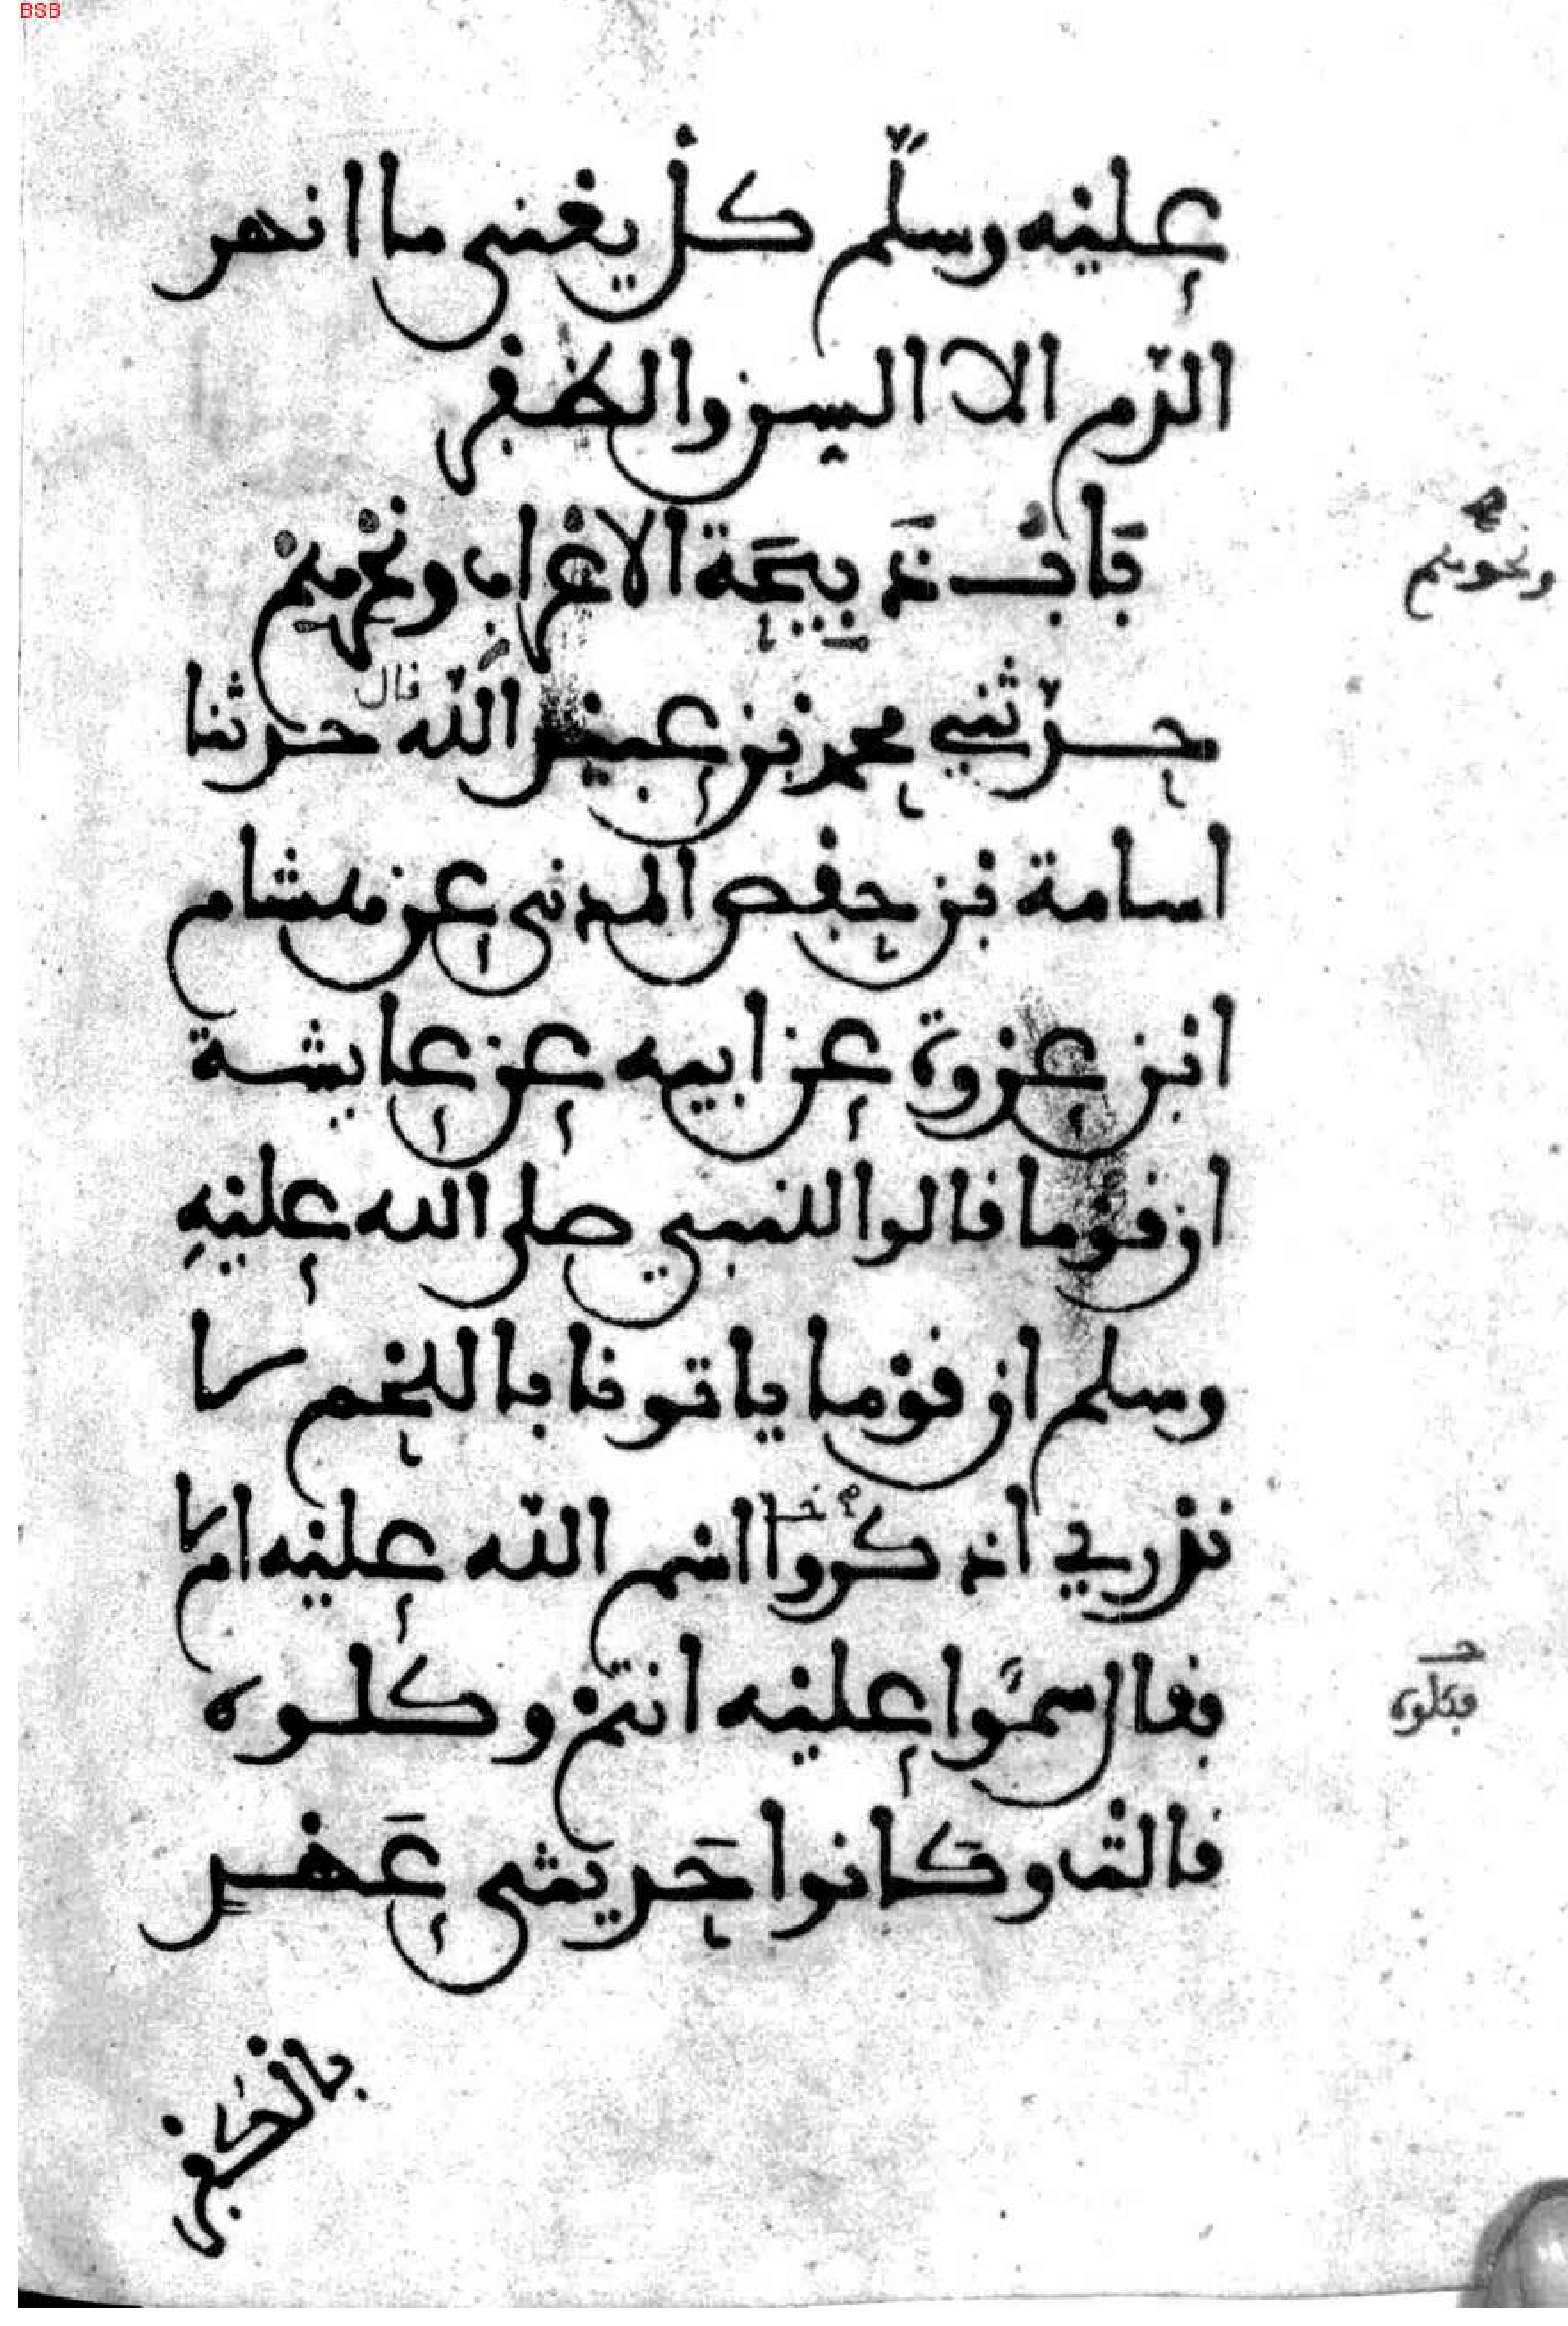 BSB
عليه وسلّم كل يعني ما انهر
الدّم الا السن والظفر
بَابُ ذَبِيحَة الاعْراب ونحْرهم
ونحوهم
حدّثني محمد بن عبيد اللّه قال حدثنا
اسامة بن حفص المدني عن هشام
ابن عروة عن ابيه عن عايشة
ان قوما قالوا للنبي صلى الله عليهِ
وسلم ان قوْما ياتوننا باللحم لا
ندري اذكروا اسم اللّه عليه ام لا
فقال سمّوا عليه انتم وكلوه
فكلوه
قالت وكانوا حَديثي عَهْدٍ
بالكفر